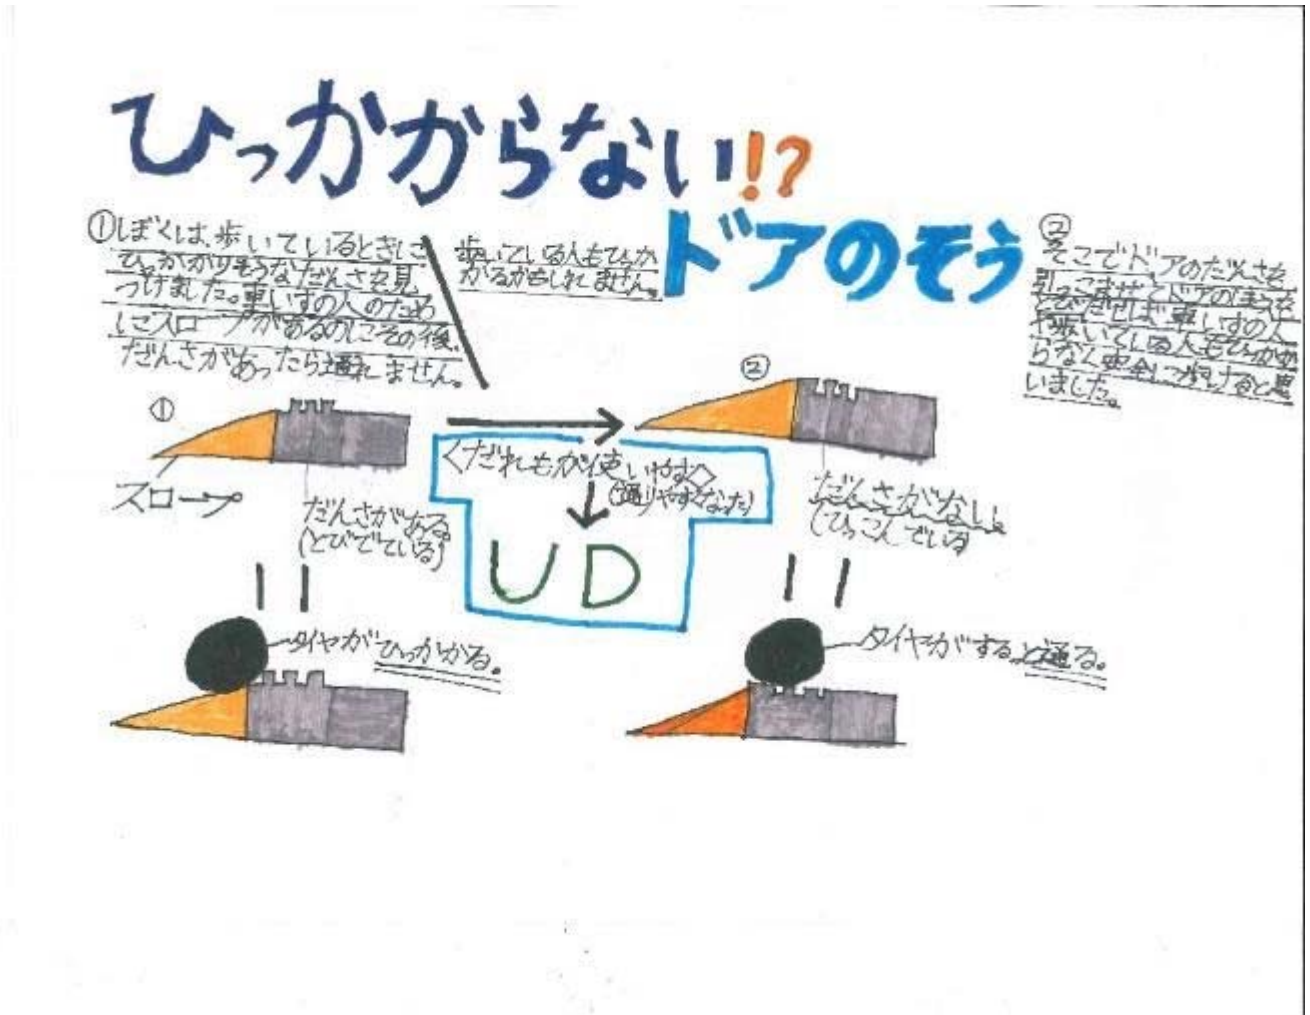 ひっかからない!?
ドアのそう
①ぼくは、歩いているときに
ひっかかりそうなだんさを見
つけました。車いすの人のため
にスロープがあるのにその後、
だんさがあったら通れません。
歩いている人もひっか
かるかもしれません。
②
そこでドアのだんさを
引っこませてドアのほうを
とびだせば車いすの人
や歩いている人もひっかか
らなく安全に歩けると思
いました。
①
スロープ
だんさがある。
(とびでている)
くだれもが使いやすく
(通りやすくなった)
UD
②
だんさがない。
(ひっこんでいる)
タイヤがひっかかる。
タイヤがするっと通る。